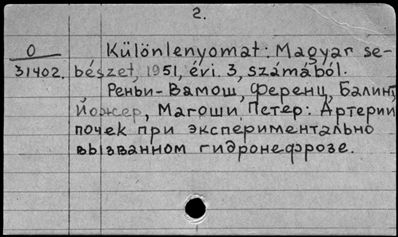 2.
O Különlenyomat: Magyar se-
31402. bészet, 1951, évi. 3, számából.
Реньи-Вамош, Ференц, Балинт,
Йожер, Магоши, Петер: Артерии
почек при экспериментально
вызванном гидронефрозе.